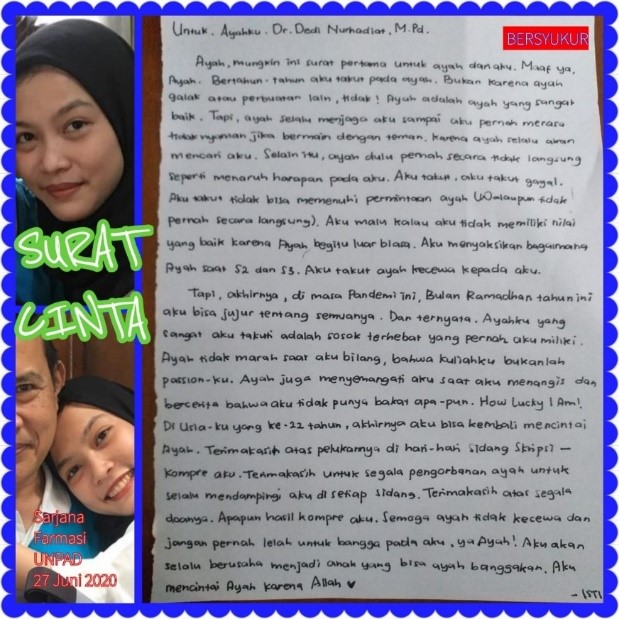 BERSYUKUR
SURAT
CINTA
Sarjana
Farmasi
UNPAD
27 Juni 2020
Untuk. Ayahku. Dr. Dedi Nurhadiat, M.Pd.
Ayah, mungkin ini surat pertama untuk ayah dan aku. Maaf ya,
Ayah. Bertahun-tahun aku takut pada ayah. Bukan karena ayah
galak atau perbuatan lain, tidak! Ayah adalah ayah yang sangat
baik. Tapi, ayah selalu menjaga aku sampai aku pernah merasa
tidak nyaman jika bermain dengan teman. Karena ayah selalu akan
mencari aku. Selain itu, ayah dulu pernah secara tidak langsung
seperti menaruh harapan pada aku. Aku takut, aku takut gagal.
Aku takut tidak bisa memenuhi permintaan ayah (Walaupun tidak
pernah secara langsung). Aku malu kalau aku tidak memiliki nilai
yang baik karena Ayah begitu luar biasa. Aku menyaksikan bagaimana
Ayah saat S2 dan S3. Aku takut ayah kecewa kepada aku.
Tapi, akhirnya, di masa Pandemi ini, Bulan Ramadhan tahun ini
aku bisa jujur tentang semuanya. Dan ternyata. Ayahku yang
sangat aku takuti adalah sosok terhebat yang pernah aku miliki.
Ayah tidak marah saat aku bilang, bahwa kuliahku bukanlah
passion-ku. Ayah juga menyemangati aku saat aku menangis dan
bercerita bahwa aku tidak punya bakat apa-pun. How Lucky I Am!
Di Usia-ku yang ke-22 tahun, akhirnya aku bisa kembali mencintai
Ayah. Terimakasih atas pelukannya di hari-hari Sidang Skripsi –
Kompre aku. Terimakasih untuk segala pengorbanan ayah untuk
selalu mendampingi aku di setiap sidang. Terimakasih atas segala
doanya. Apapun hasil kompre aku. Semoga ayah tidak kecewa dan
jangan pernah lelah untuk bangga pada aku, ya Ayah! Aku akan
selalu berusaha menjadi anak yang bisa ayah banggakan. Aku
mencintai Ayah karena Allah ♥
- ISTI